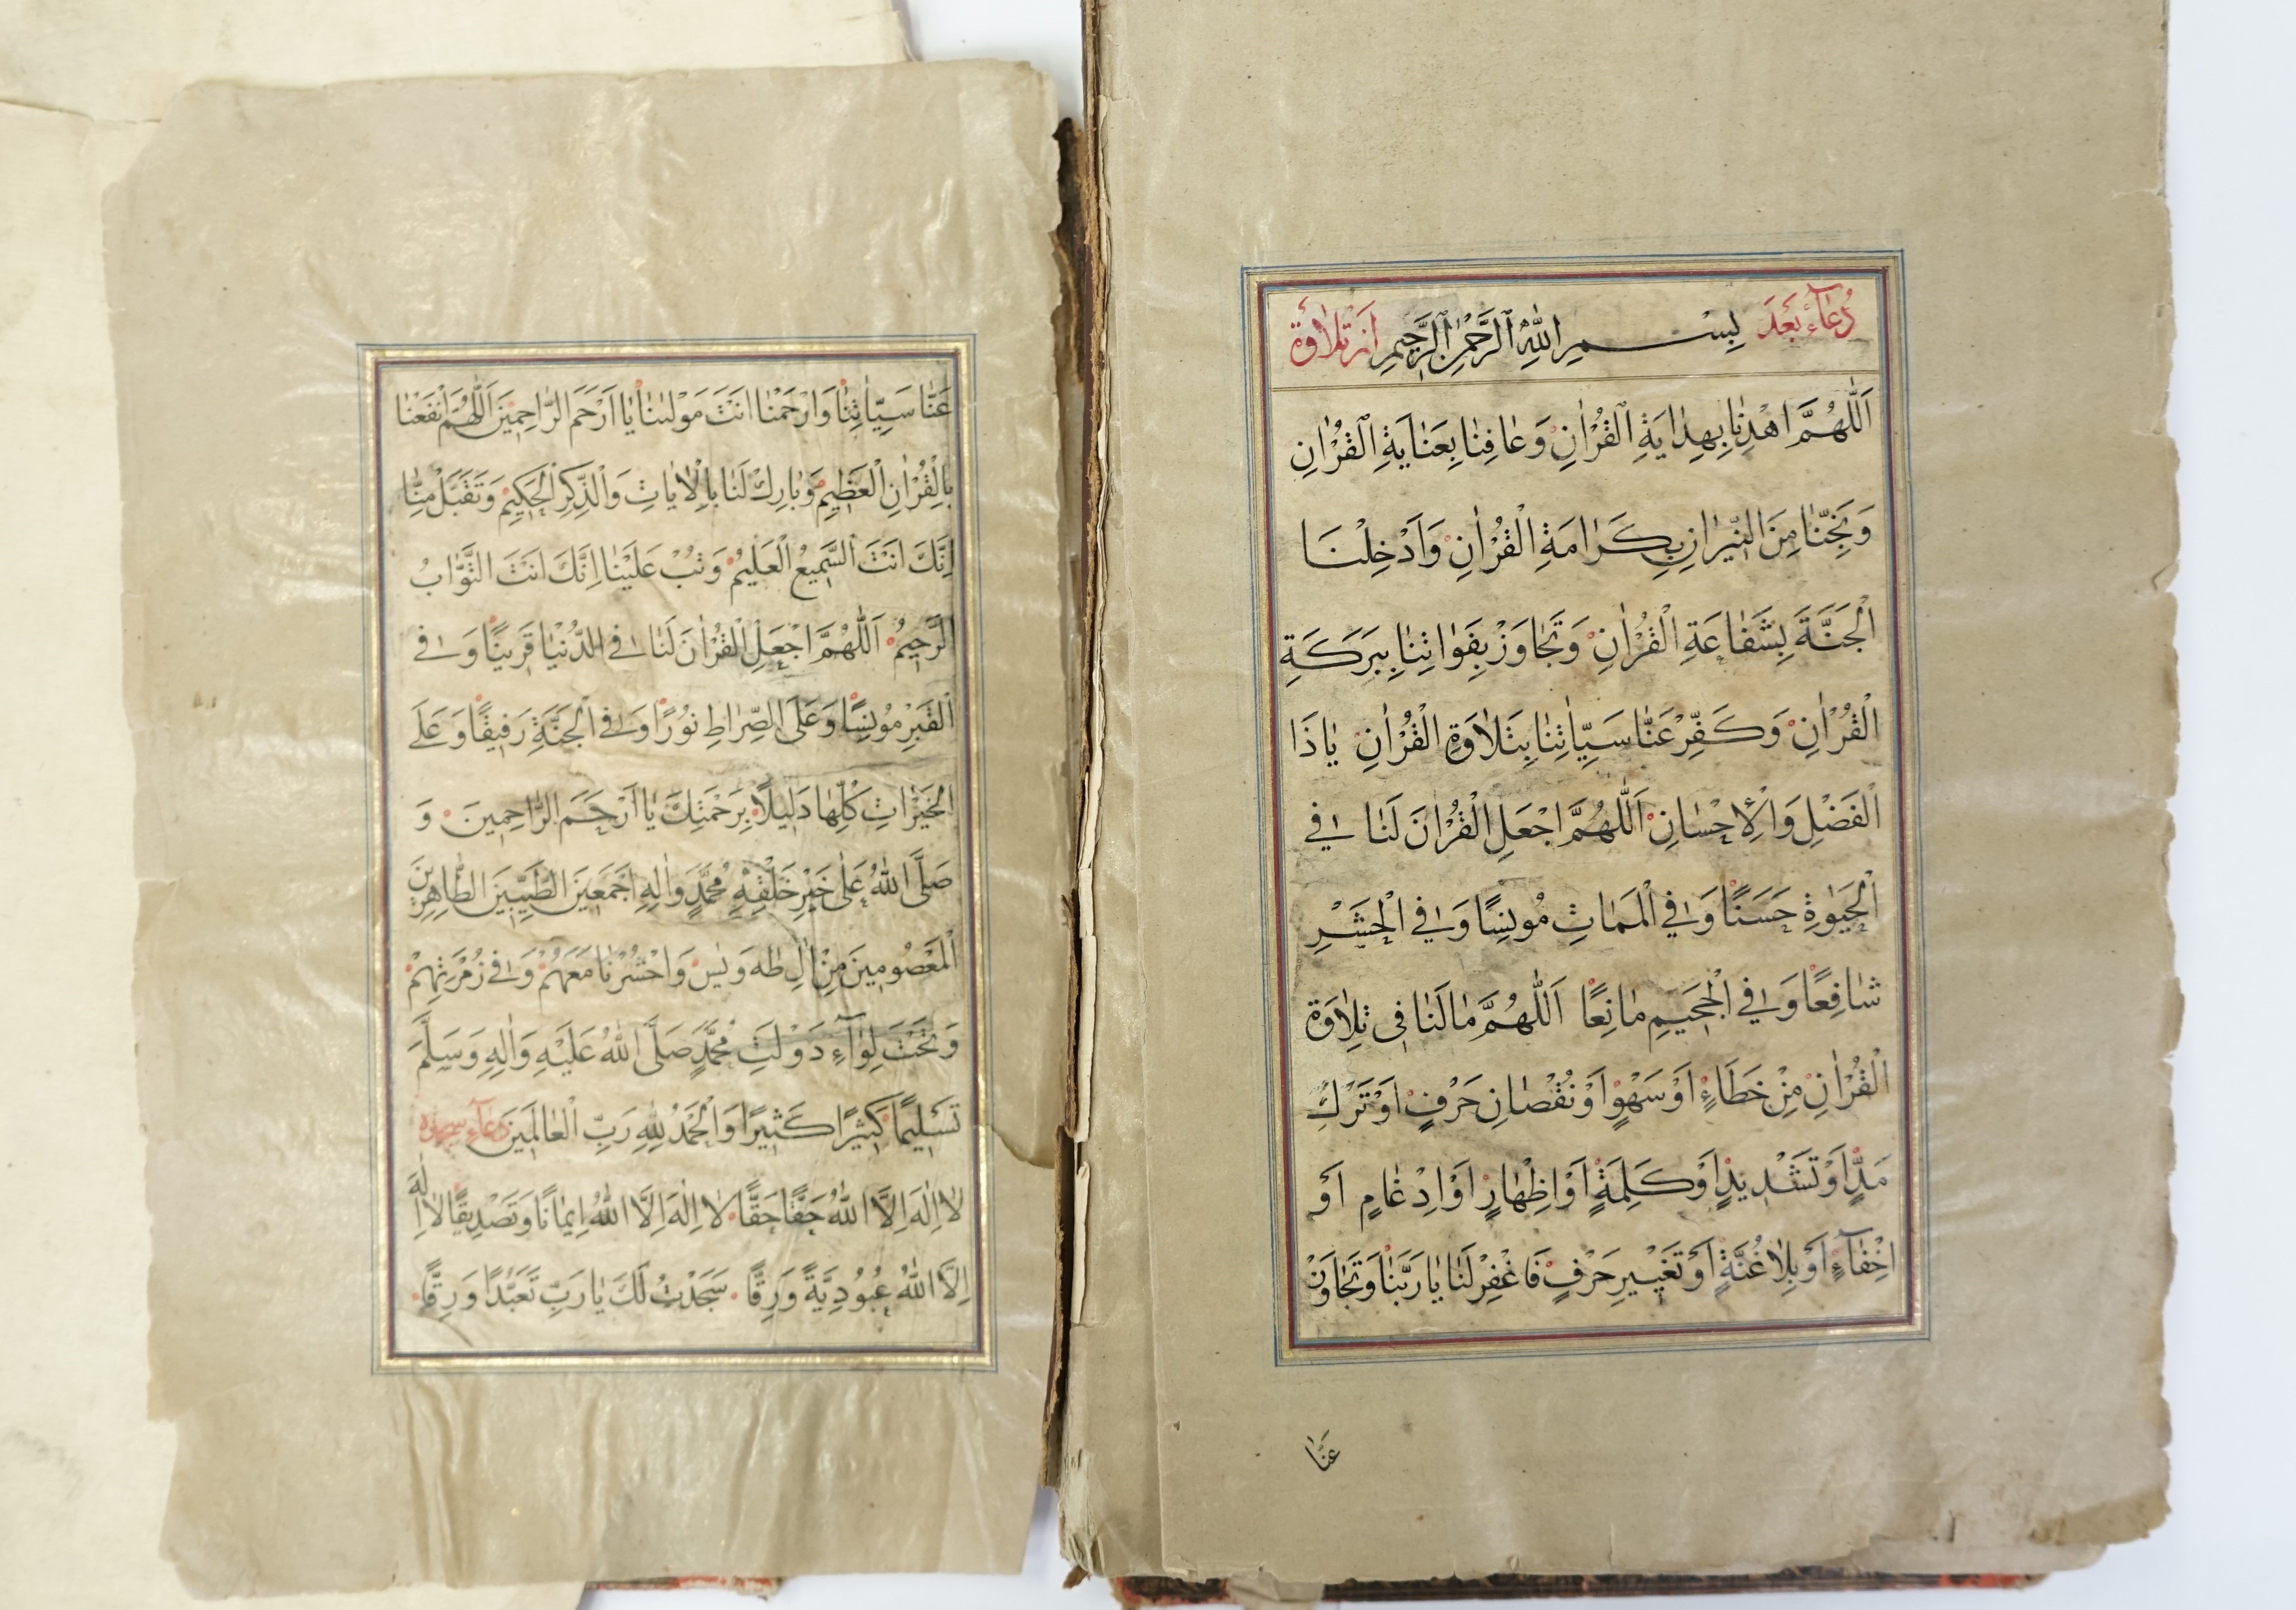 دُعآء بَعَدَ بِسْمِ اللّٰهِ الرَّحْمٰنِ الرَّحِيمِ اَزْ تِلاٰوَة
اَللّٰهُمَّ اهْدِنٰا بِهِدٰايَةِ الْقُرْاٰنِ وَعٰافِنٰا بِعَنٰايَةِ الْقُرْاٰنِ
وَنَجِّنٰا مِنَ النّيٖرٰانِ بِكَرٰامَةِ الْقُرْاٰنِ وَاَدْخِلْنَا
الْجَنَّةَ بِشَفٰاعَةِ الْقُرْاٰنِ وَتَجٰاوَزْ بِفَوٰاتِنٰا بِبَرَكَةِ
الْقُرْاٰنِ وَكَفِّرْ عَنّٰا سَيِّاٰتِنٰا بِتَلاٰوَةِ الْقُرْاٰنِ يٰا ذَا
الْفَضْلِ وَالْاِحْسٰانِ اَللّٰهُمَّ اجْعَلِ الْقُرْاٰنَ لَنٰا فِي
الْحَيٰوةِ حَسَنًا وَفِي الْمَمٰاتِ مُونِسًا وَفِي الْحَشَرِ
شٰافِعًا وَفِي الْجَحٖيمِ مٰانِعًا اَللّٰهُمَّ مٰا لَنٰا فٖى تِلاٰوَة
الْقُرْاٰنِ مِنْ خَطَاءٍ اَوْ سَهْوٍ اَوْ نُقْصٰانِ حَرْفٍ اَوْ تَرْكِ
مَدٍّ اَوْ تَشْدٖيدٍ اَوْ كَلِمَةٍ اَوْ اِظْهٰارٍ اَوْ اِدْغٰامٍ اَوْ
اِخْفٰآءٍ اَوْ بِلاٰ غُنَّةٍ اَوْ تَغْيٖيرِ حَرْفٍ فَاغْفِرْ لَنٰا يٰا رَبَّنٰا وَتَجٰاوَزْ
عَنّٰا
عَنّٰا سَيِّاٰتِنٰا وَارْحَمْنٰا اَنْتَ مَوْلٰينٰا يٰا اَرْحَمَ الرّٰاحِمٖينَ اَللّٰهُمَّ انْفَعْنٰا
بِالْقُرْاٰنِ الْعَظٖيمِ وَبٰارِكْ لَنٰا بِالْاٰيٰاتِ وَالذِّكْرِ الْحَكٖيمِ وَتَقَبَّلْ مِنّٰا
اِنَّكَ اَنْتَ السَّمٖيعُ الْعَلٖيمُ وَتُبْ عَلَيْنٰا اِنَّكَ اَنْتَ التَّوّٰابُ
الرَّحٖيمُ اَللّٰهُمَّ اجْعَلِ الْقُرْاٰنَ لَنٰا فِي الدُّنْيٰا قَرٖينًا وَفِي
الْقَبْرِ مُونِسًا وَعَلَى الصِّرٰاطِ نُورًا وَفِي الْجَنَّةِ رَفٖيقًا وَعَلَى
الْخَيْرٰاتِ كُلِّهٰا دَلٖيلًا بِرَحْمَتِكَ يٰا اَرْحَمَ الرّٰاحِمٖينَ وَ
صَلَّى اللّٰهُ عَلٰى خَيْرِ خَلْقِهٖ مُحَمَّدٍ وَاٰلِهٖ اَجْمَعٖينَ الطَّيِّبٖينَ الطّٰاهِرٖينَ
الْمَعْصُومٖينَ مِنْ اٰلِ طٰهٰ وَيٰسٓ وَاحْشُرْنٰا مَعَهُمْ وَفٖي زُمْرَتِهِمْ
وَتَحْتَ لِوٰآءِ دَوْلَتِ مُحَمَّدٍ صَلَّى اللّٰهُ عَلَيْهِ وَاٰلِهٖ وَسَلَّمَ
تَسْلٖيمًا كَثٖيرًا كَثٖيرًا وَالْحَمْدُ لِلّٰهِ رَبِّ الْعٰالَمٖينَ دعآء سجده
لاٰ اِلٰهَ اِلَّا اللّٰهُ حَقًّا حَقًّا لاٰ اِلٰهَ اِلَّا اللّٰهُ اِيمٰانًا وَتَصْدٖيقًا لاٰ اِلٰهَ
اِلَّا اللّٰهُ عُبُودِيَّةً وَرِقًّا سَجَدْتُ لَكَ يٰا رَبِّ تَعَبُّدًا وَرِقًّا